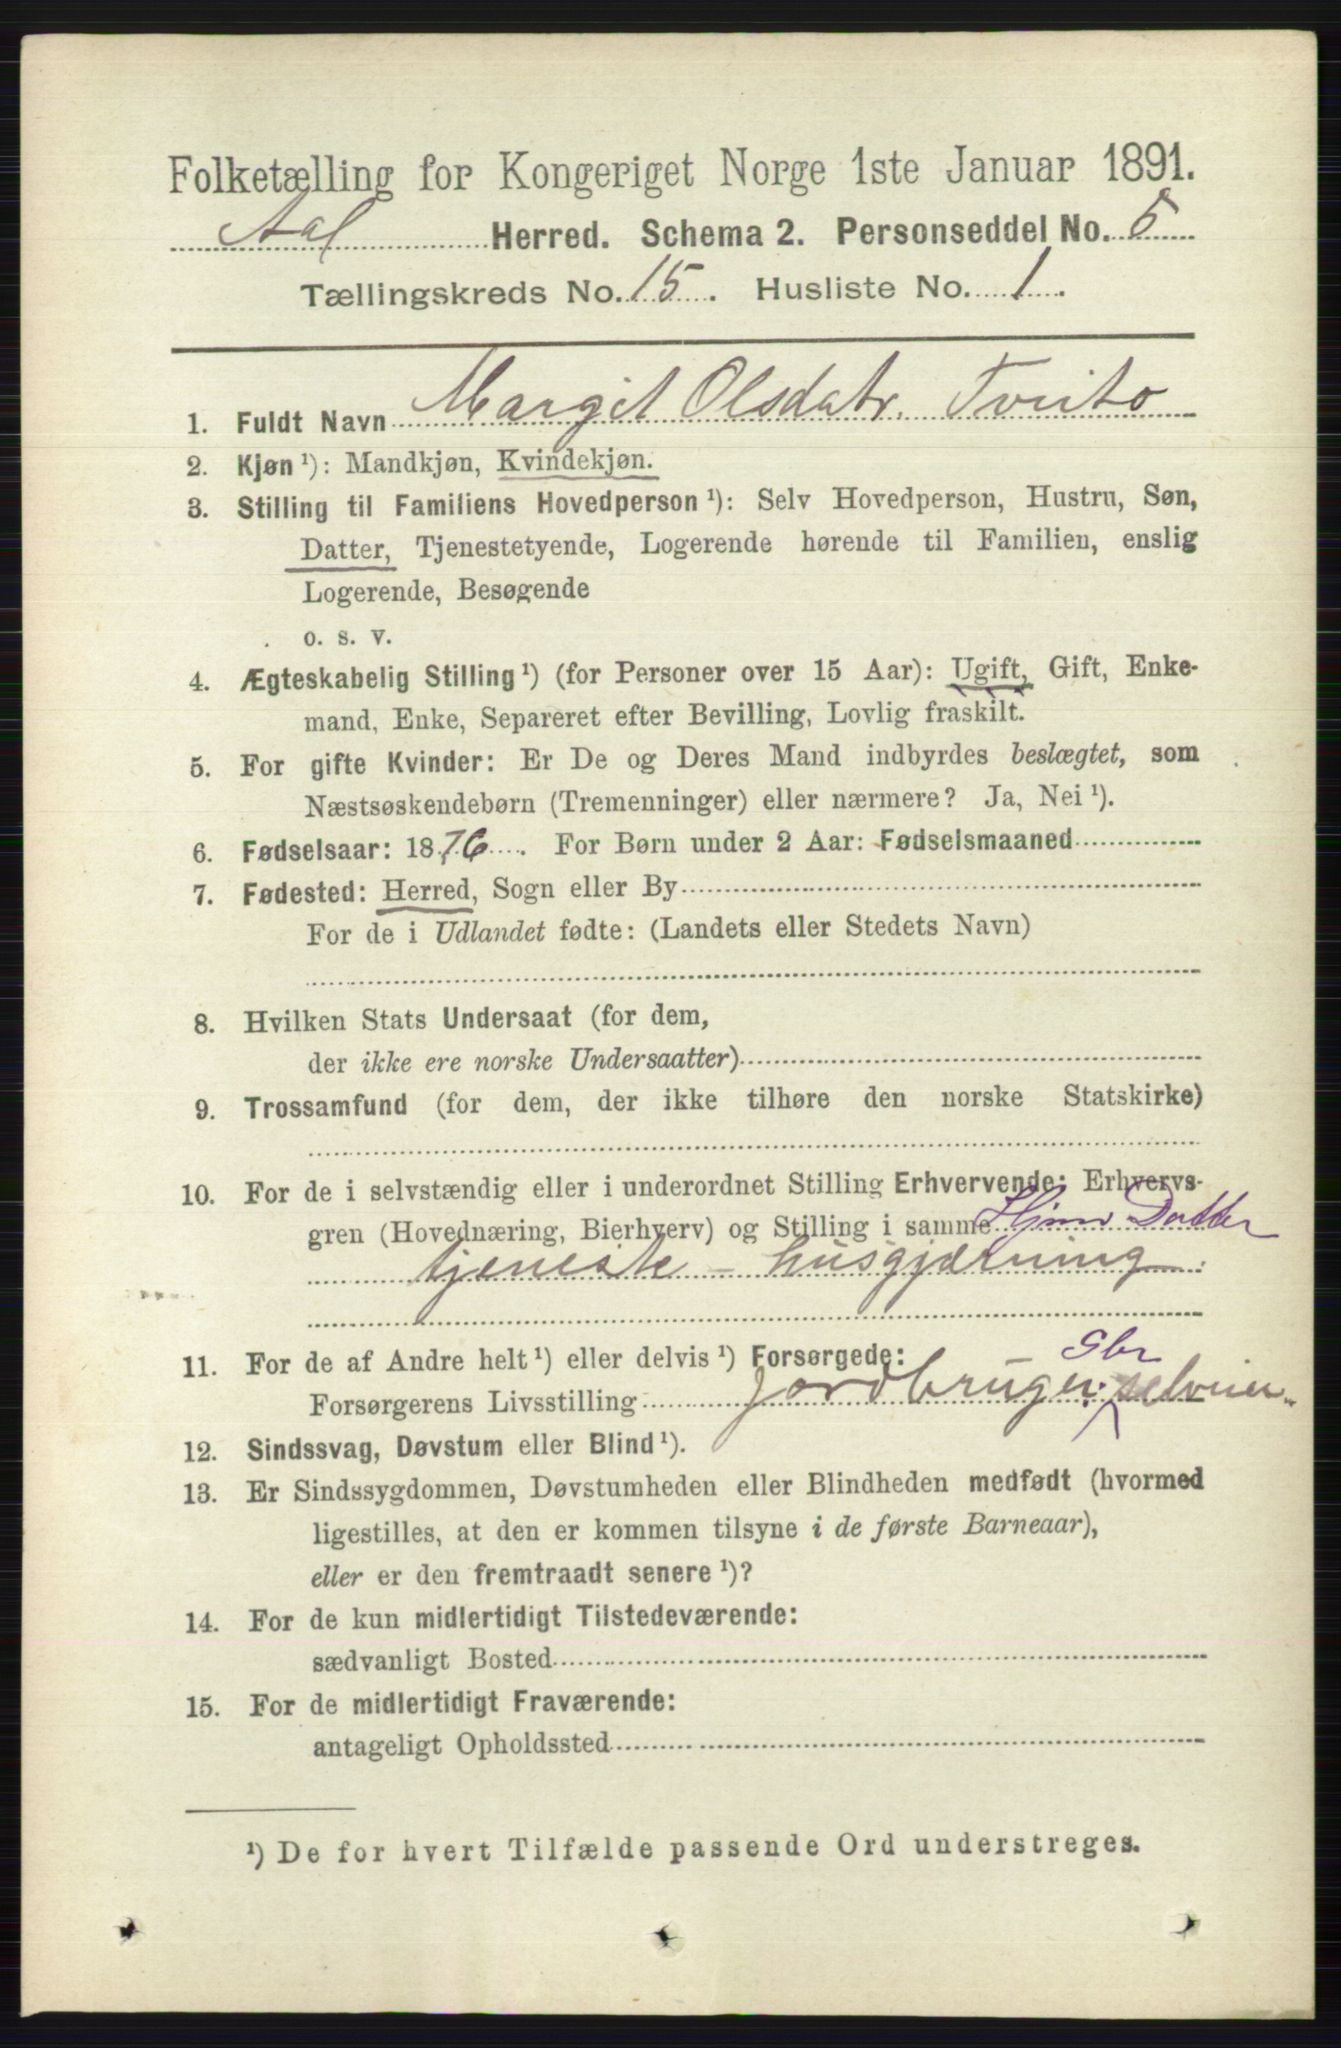 Folketælling for Kongeriget Norge 1ste Januar 1891.
Aal Herred. Schema 2. Personseddel No. 5
Tællingskreds No. 15. Husliste No. 1.
1. Fuldt Navn Margit Olsdatr. Tvito
2. Kjøn ¹): Mandkjøn, Kvindekjøn.
3. Stilling til Familiens Hovedperson ¹): Selv Hovedperson, Hustru, Søn,
Datter, Tjenestetyende, Logerende hørende til Familien, enslig
Logerende, Besøgende
o. s. v.
4. Ægteskabelig Stilling ¹) (for Personer over 15 Aar): Ugift, Gift, Enke-
mand, Enke, Separeret efter Bevilling, Lovlig fraskilt.
5. For gifte Kvinder: Er De og Deres Mand indbyrdes beslægtet, som
Næstsøskendebørn (Tremenninger) eller nærmere? Ja, Nei ¹).
6. Fødselsaar: 1876. For Børn under 2 Aar: Fødselsmaaned
7. Fødested: Herred, Sogn eller By
For de i Udlandet fødte: (Landets eller Stedets Navn)
8. Hvilken Stats Undersaat (for dem,
der ikke ere norske Undersaatter)
9. Trossamfund (for dem, der ikke tilhøre den norske Statskirke)
10. For de i selvstændig eller i underordnet Stilling Erhvervende: Erhvervs-
gren (Hovednæring, Bierhverv) og Stilling i samme Datter
tjeneste - husgjerning
11. For de af Andre helt ¹) eller delvis ¹) Forsørgede:
Gbr
Forsørgerens Livsstilling Jordbruger. selveier
12. Sindssvag, Døvstum eller Blind ¹).
13. Er Sindssygdommen, Døvstumheden eller Blindheden medfødt (hvormed
ligestilles, at den er kommen tilsyne i de første Barneaar),
eller er den fremtraadt senere ¹)?
14. For de kun midlertidigt Tilstedeværende:
sædvanligt Bosted
15. For de midlertidigt Fraværende:
antageligt Opholdssted
¹) De for hvert Tilfælde passende Ord understreges.